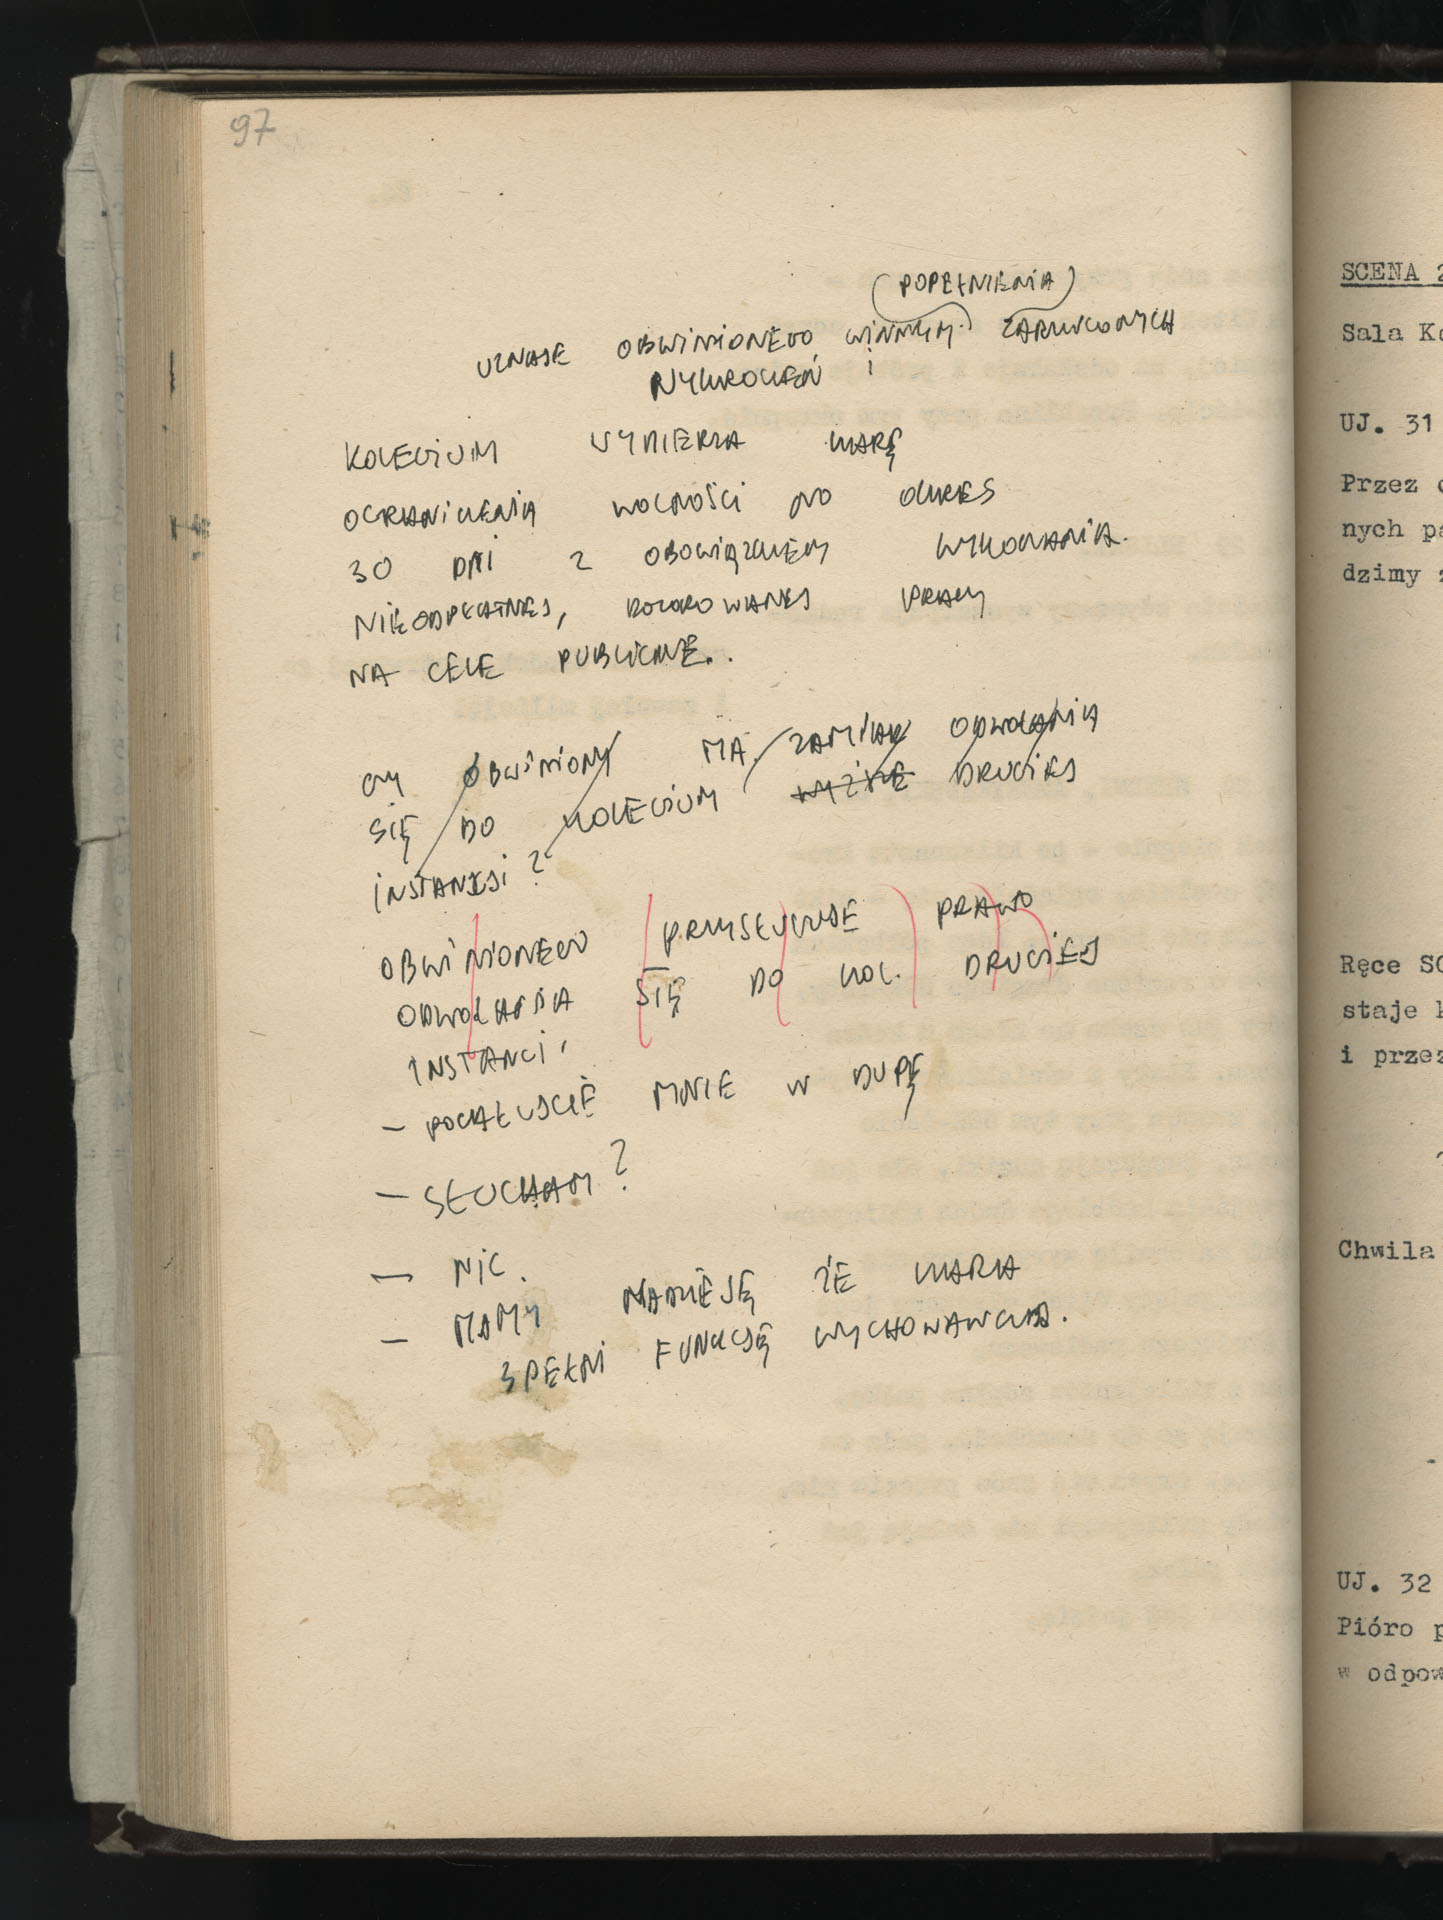 97
(POPEŁNIENIA)
UZNAJE OBWINIONEGO WINNYM ZARZUCONYCH
WYKROCZEŃ i
KOLEGIUM WYMIERZA KARĘ
OGRANICZENIA WOLNOŚCI NO OKRES
30 DNI Z OBOWIĄZKIEM WYKONANIA
NIEODPŁATNEJ, DOZOROWANEJ PRACY
NA CELE PUBLICZNE..
CZY OBWINIONY MA ZAMIAR ODWOŁANIA
SIĘ DO KOLEGIUM WYŻSZE DRUGIEJ
INSTANCJI?
OBWINIONEGO PRZYSŁUGUJE PRAWO
ODWOŁANIA SIĘ DO KOL. DRUGIEJ
INSTANCI.
— POCAŁUJCIE MNIE W DUPĘ
— SŁUCHAM?
— NIC.
— MAMY NADZIEJĘ ŻE KARA
SPEŁNI FUNKCJĘ WYCHOWAWCZĄ.
SCENA 2
Sala Ko
UJ. 31
Przez
nych pa
dzimy
Ręce SC
staje k
i przez
Chwila
UJ. 32
Pióro p
w odpow